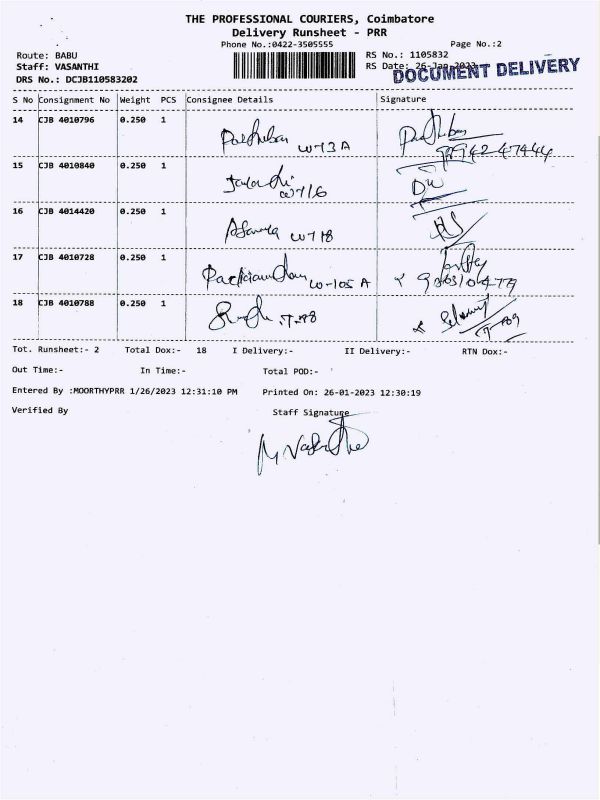 THE PROFESSIONAL COURIERS, Coimbatore
Delivery Runsheet - PRR
Phone No.:0422-3505555
Page No.:2
Route: BABU
RS No.: 1105832
Staff: VASANTHI
RS Date: 26-Jan-2023
DOCUMENT DELIVERY
DRS No.: DCJB110583202
S No Consignment No Weight PCS Consignee Details Signature
14 CJB 4010796 0.250 1
W73A
15 CJB 4010840 0.250 1
W716
16 CJB 4014420 0.250 1
W718
17 CJB 4010728 0.250 1
W-105 A
18 CJB 4010788 0.250 1
Tot. Runsheet:- 2 Total Dox:- 18 I Delivery:- II Delivery:- RTN Dox:-
Out Time:- In Time:- Total POD:-
Entered By :MOORTHYPRR 1/26/2023 12:31:10 PM Printed On: 26-01-2023 12:30:19
Verified By Staff Signature